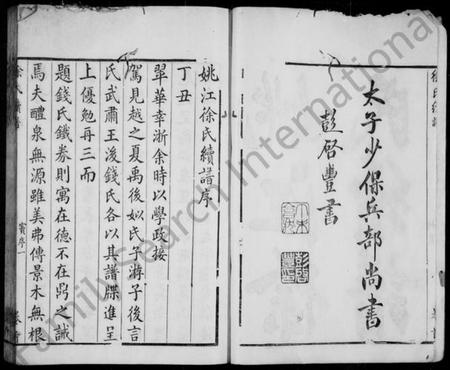 太子少保兵部尚書
彭啓豐書
姚江徐氏續譜序
丁丑
翠華幸浙余時以學政接
駕見越之夏禹後姒氏子游子後言
氏武肅王後錢氏各以其譜牒進呈
上優勉再三而
題錢氏鐵券則寓在德不在鼎之誡
焉夫醴泉無源雖美弗傳景木無根
徐氏續譜
賓序一
FamilySearch International